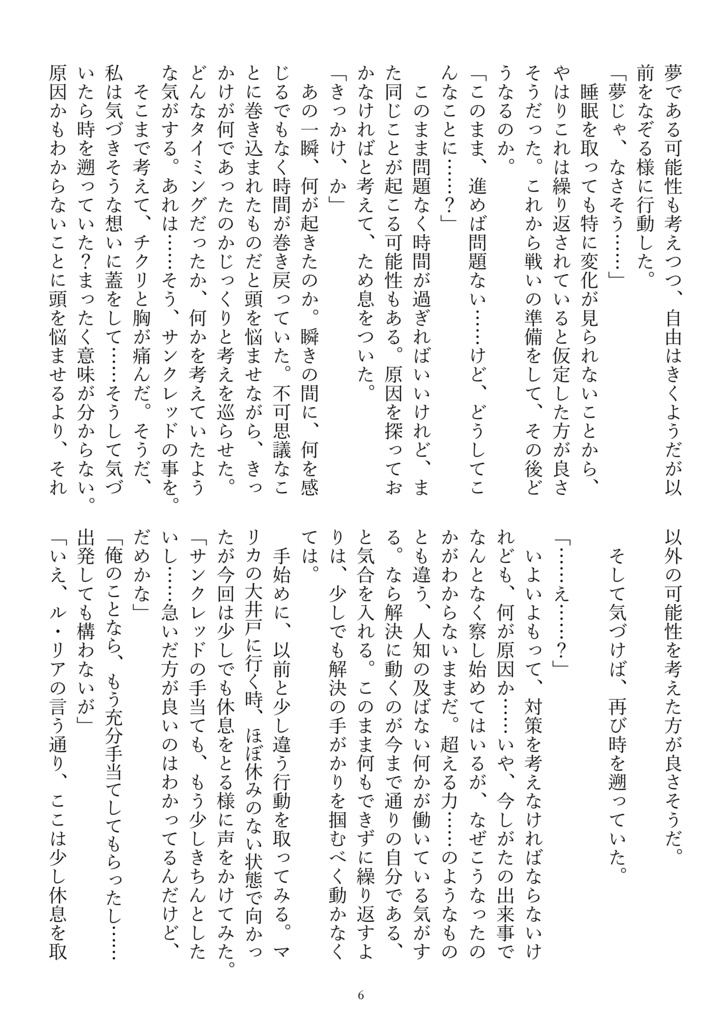 夢である可能性も考えつつ、自由はきくようだが以
前をなぞる様に行動した。
「夢じゃ、なさそう……」
　睡眠を取っても特に変化が見られないことから、
やはりこれは繰り返されていると仮定した方が良さ
そうだった。これから戦いの準備をして、その後ど
うなるのか。
「このまま、進めば問題ない……けど、どうしてこ
んなことに……？」
　このまま問題なく時間が過ぎればいいけれど、ま
た同じことが起こる可能性もある。原因を探ってお
かなければと考えて、ため息をついた。
「きっかけ、か」
　あの一瞬、何が起きたのか。瞬きの間に、何を感
じるでもなく時間が巻き戻っていた。不可思議なこ
とに巻き込まれたものだと頭を悩ませながら、きっ
かけが何であったのかじっくりと考えを巡らせた。
どんなタイミングだったか、何かを考えていたよう
な気がする。あれは……そう、サンクレッドの事を。
　そこまで考えて、チクリと胸が痛んだ。そうだ、
私は気づきそうな想いに蓋をして……そうして気づ
いたら時を遡っていた？まったく意味が分からない。
原因かもわからないことに頭を悩ませるより、それ
以外の可能性を考えた方が良さそうだ。
　そして気づけば、再び時を遡っていた。
「……え……？」
　いよいよもって、対策を考えなければならないけ
れども、何が原因か……いや、今しがたの出来事で
なんとなく察し始めてはいるが、なぜこうなったの
かがわからないままだ。超える力……のようなもの
とも違う、人知の及ばない何かが働いている気がす
る。なら解決に動くのが今まで通りの自分である、
と気合を入れる。このまま何もできずに繰り返すよ
りは、少しでも解決の手がかりを掴むべく動かなく
ては。
　手始めに、以前と少し違う行動を取ってみる。マ
リカの大井戸に行く時、ほぼ休みのない状態で向かっ
たが今回は少しでも休息をとる様に声をかけてみた。
「サンクレッドの手当ても、もう少しきちんとした
いし……急いだ方が良いのはわかってるんだけど、
だめかな」
「俺のことなら、もう充分手当てしてもらったし……
出発しても構わないが」
「いえ、ル・リアの言う通り、ここは少し休息を取
6